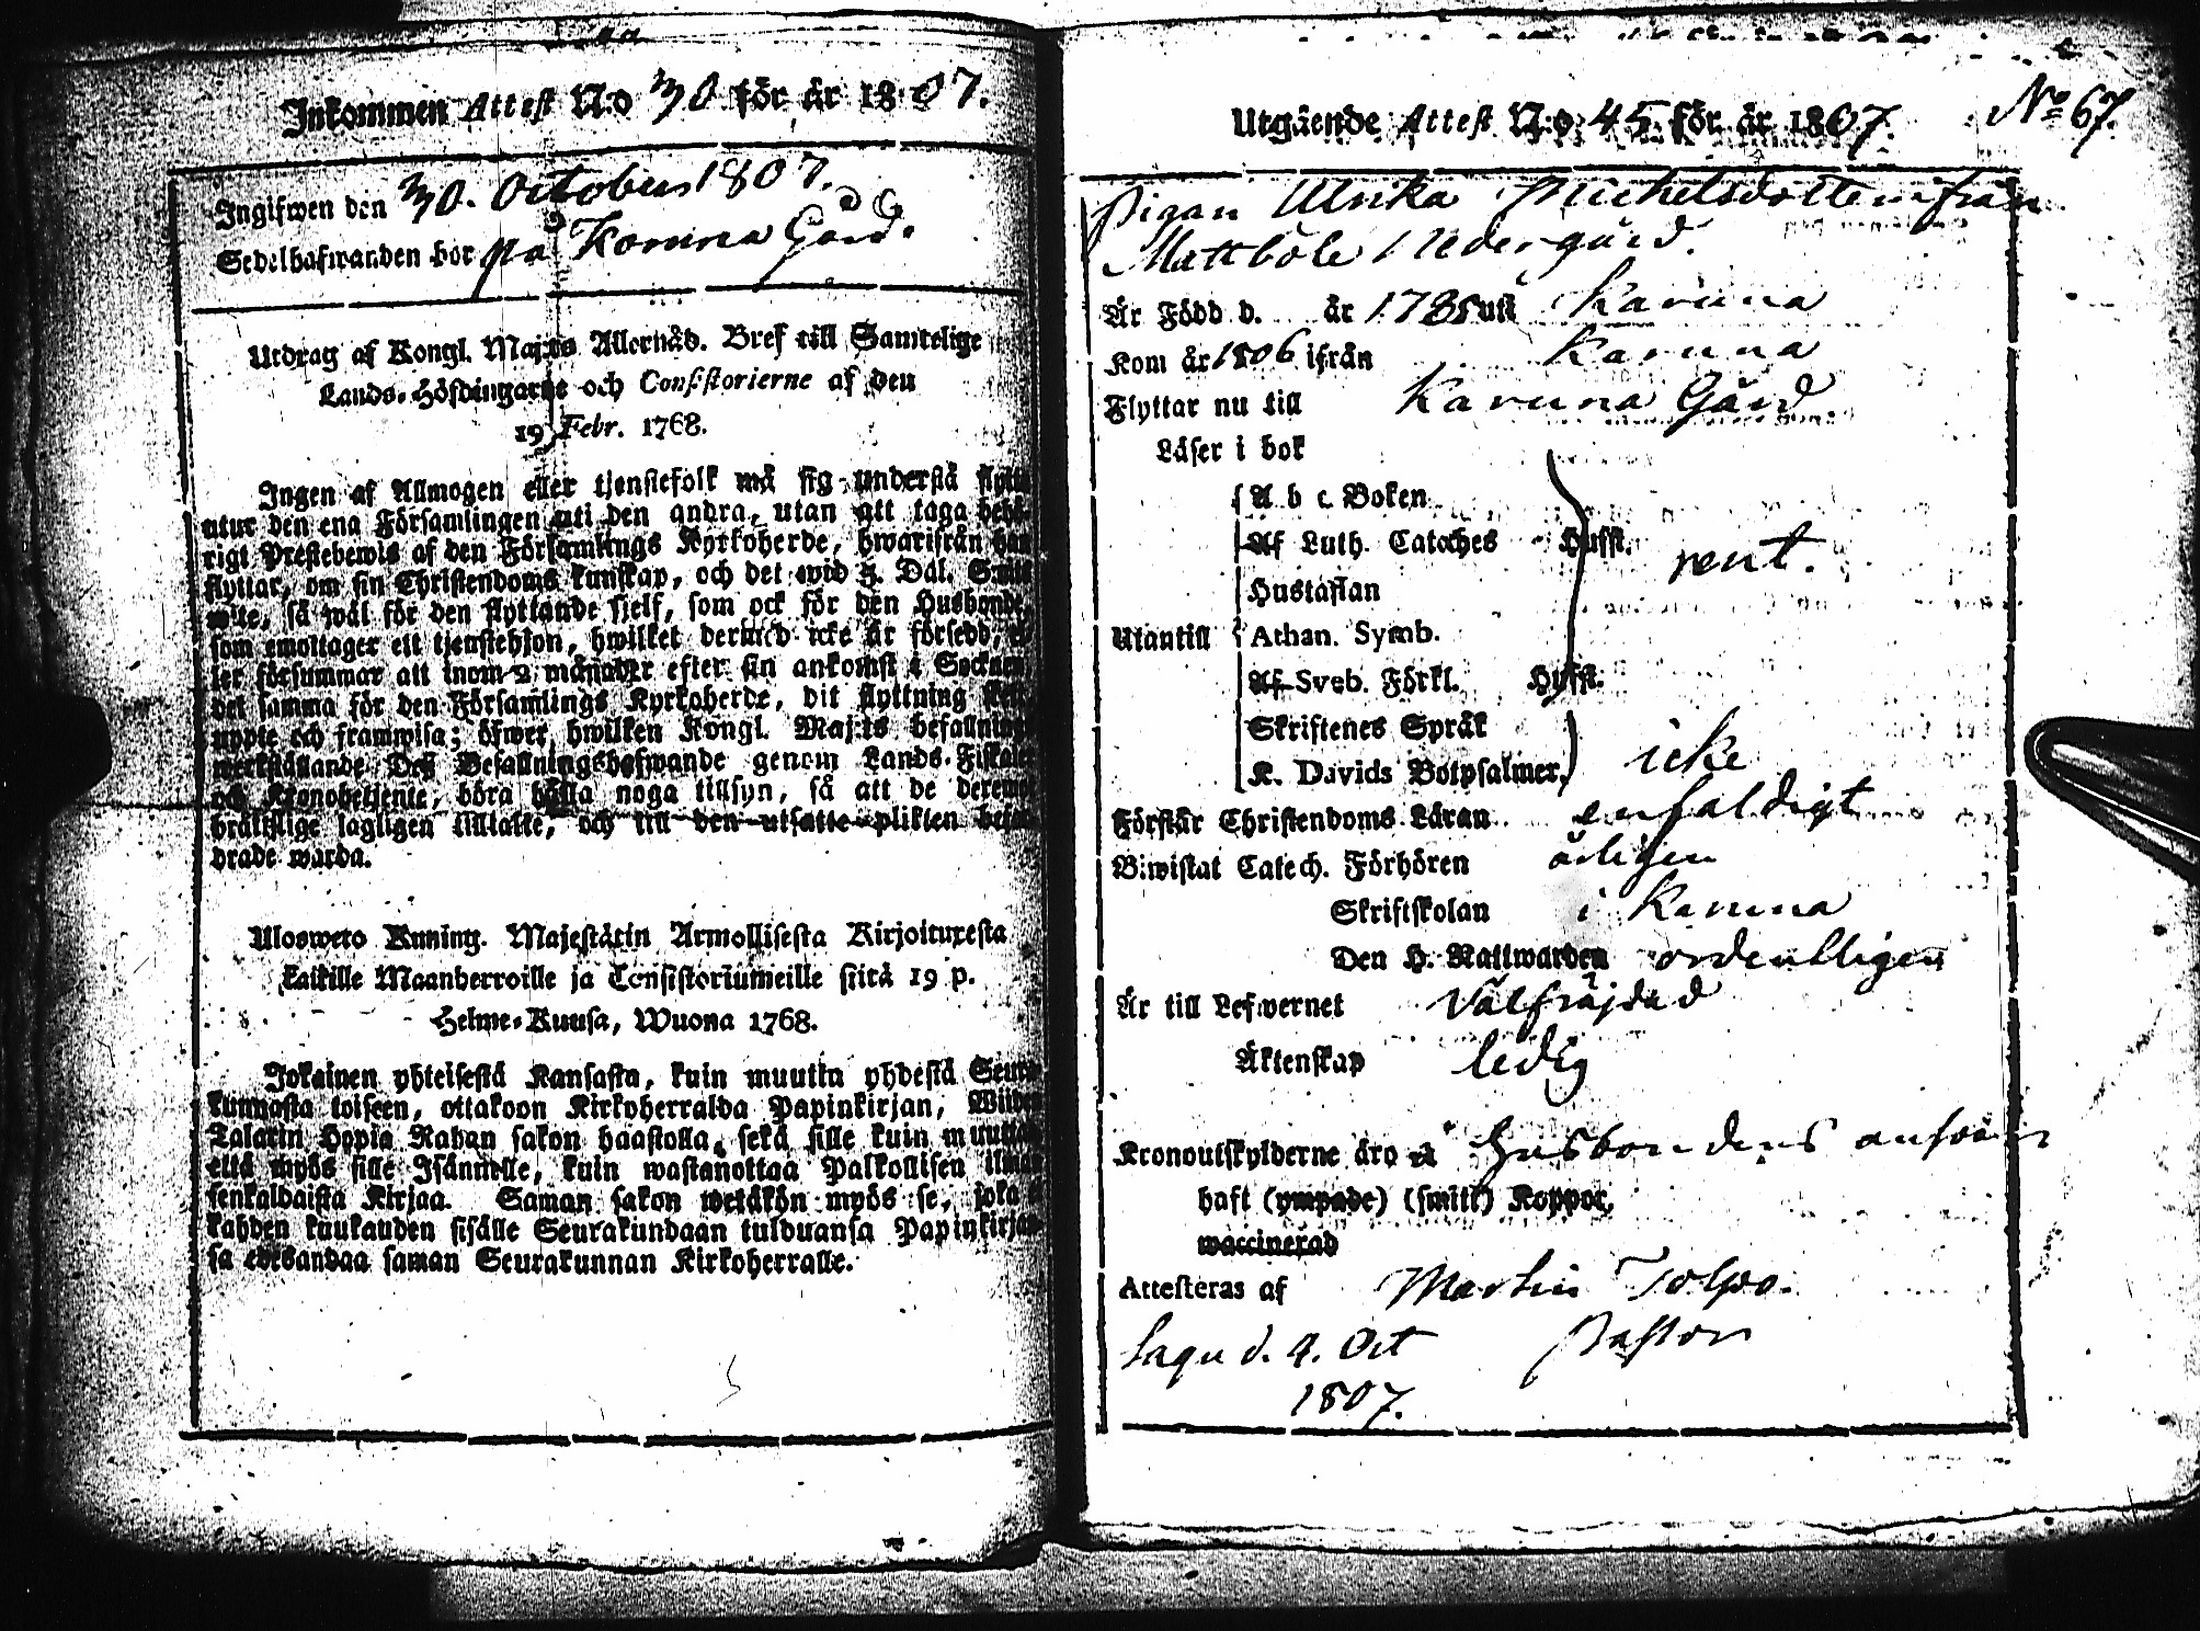 Inkommen Attest N:o 30 för år 1807.
Ingifwen den 30. October 1807.
Sedelhafwanden bor på Koruna Gård.
Utdrag af Kongl. Maj:ts Allernåd. Bref till Samtelige
Lands-Höfdingarne och Consistorierne af den
19 Febr. 1768.
Ingen af Allmogen eller tjenstefolk må sig understå flytta
utur den ena Församlingen uti den andra, utan att taga behö-
rigt Prestebewis af den Församlings Kyrkoherde, hwarifrån han
flyttar, om sin Christendoms kunskap, och det wid 3. Dal. S:mts
wite, så wäl för den flyttande sjelf, som ock för den Husbonde,
som emottager ett tjenstehjon, hwilket dermed icke är försedd, el-
ler försummar att inom 2 månader efter sin ankomst i Socknen
det samma för den Församlings Kyrkoherde, dit flyttning skett,
uppte och framwisa; öfwer hwilken Kongl. Maj:ts befallnings
werkställande Dess Befallningshafwande genom Lands-Fiskaler
och Kronobetjente, böra hålla noga tillsyn, så att de deremot
bråttslige lagligen tilltalte, och till den utsatte plikten befor-
drade warda.
Ulosweto Kuning. Majestätin Armollisesta Kirjoituxesta
kaikille Maanherroille ja Consistoriumeille siitä 19 p.
Helme-Kuusa, Wuona 1768.
Jokainen yhteisestä Kansasta, kuin muutta yhdestä Seura-
kunnasta toiseen, ottakoon Kirkoherralda Papinkirjan, Wiiden
Talarin Hopia Rahan sakon haastolla, sekä sille kuin muutta
että myös sille Isännelle, kuin wastanottaa Palkollisen ilman
senkaldaista Kirjaa. Saman sakon wetäkön myös se, joka ei
kahden kuukauden sisälle Seurakundaan tulduansa Papinkirjan-
sa edesandaa saman Seurakunnan Kirkoherralle.
Utgående Attest N:o 45 för år 1807. No 67.
Pigan Ulrika Michelsdotter ifrån
Mattböle Nedergård.
Är Född d. år 178 uti Karuna
Kom år 1806 ifrån Karuna
Flyttar nu till Karuna Gård
Läser i bok
A b c Boken
Af Luth. Cateches Hufst.
rent.
Hustaflan
Utantill Athan. Symb.
Af Sveb. Förkl. Hufst.
Skriftenes Språk
icke
K. Davids Botpsalmer,
Förstår Christendoms Läran enfaldigt
Biwistat Catech. Förhören årligen
Skriftskolan i Karuna
Den H. Nattwarden ordentligen
Är till Lefwernet Välfräjdad
Äktenskap ledig
Kronoutskylderne äro å Husbondens answar
haft (ympade) (smitt) Koppor,
waccinerad
Attesteras af Martin Tolpo.
Sagu d. 4. Oct Pastor
1807.